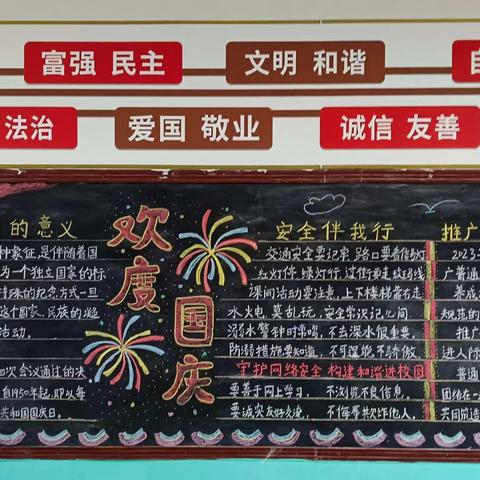 富强 民主
文明 和谐
自
法治
爱国 敬业
诚信 友善
的意义
种象征,是伴随着国
为一个独立国家的标
特殊的纪念方式一旦
这个国家、民族的凝
活动。
次会议通过的决
自1950年起,即以每
共和国国庆日。
欢度
国庆
安全伴我行
交通安全要记牢,路口要看信号灯
红灯停,绿灯行,过街要走斑马线
课间活动要注意,上下楼梯靠右走
水火电,莫乱玩,安全常识记心间
溺水警钟时常鸣,不去深水很重要
防溺措施要知道,不可逞能
守护网络安全 构建和谐进校园
要善于网上学习,不浏览不良信息,
要诚实友好交流,不侮辱欺诈他人,
推广
2023
广普通
养成
规范的
推广
进人际
普通
团结在
共同